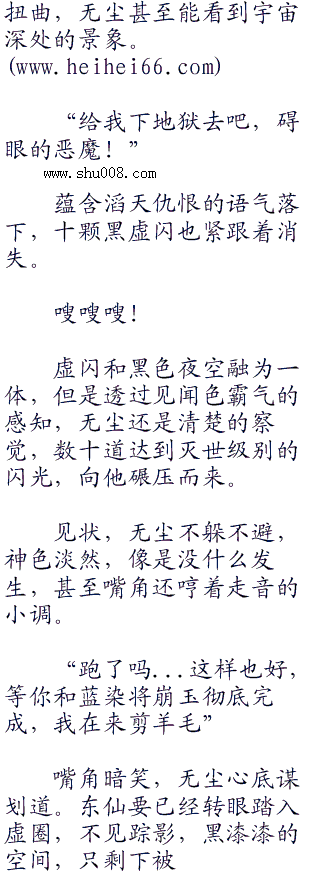 扭曲，无尘甚至能看到宇宙
深处的景象。
(www.heihei66.com)
“给我下地狱去吧，碍
眼的恶魔！”
www.shu008.com
蕴含滔天仇恨的语气落
下，十颗黑虚闪也紧跟着消
失。
嗖嗖嗖！
虚闪和黑色夜空融为一
体，但是透过见闻色霸气的
感知，无尘还是清楚的察
觉，数十道达到灭世级别的
闪光，向他碾压而来。
见状，无尘不躲不避，
神色淡然，像是没什么发
生，甚至嘴角还哼着走音的
小调。
“跑了吗...这样也好，
等你和蓝染将崩玉彻底完
成，我在来剪羊毛”
嘴角暗笑，无尘心底谋
划道。东仙要已经转眼踏入
虚圈，不见踪影，黑漆漆的
空间，只剩下被